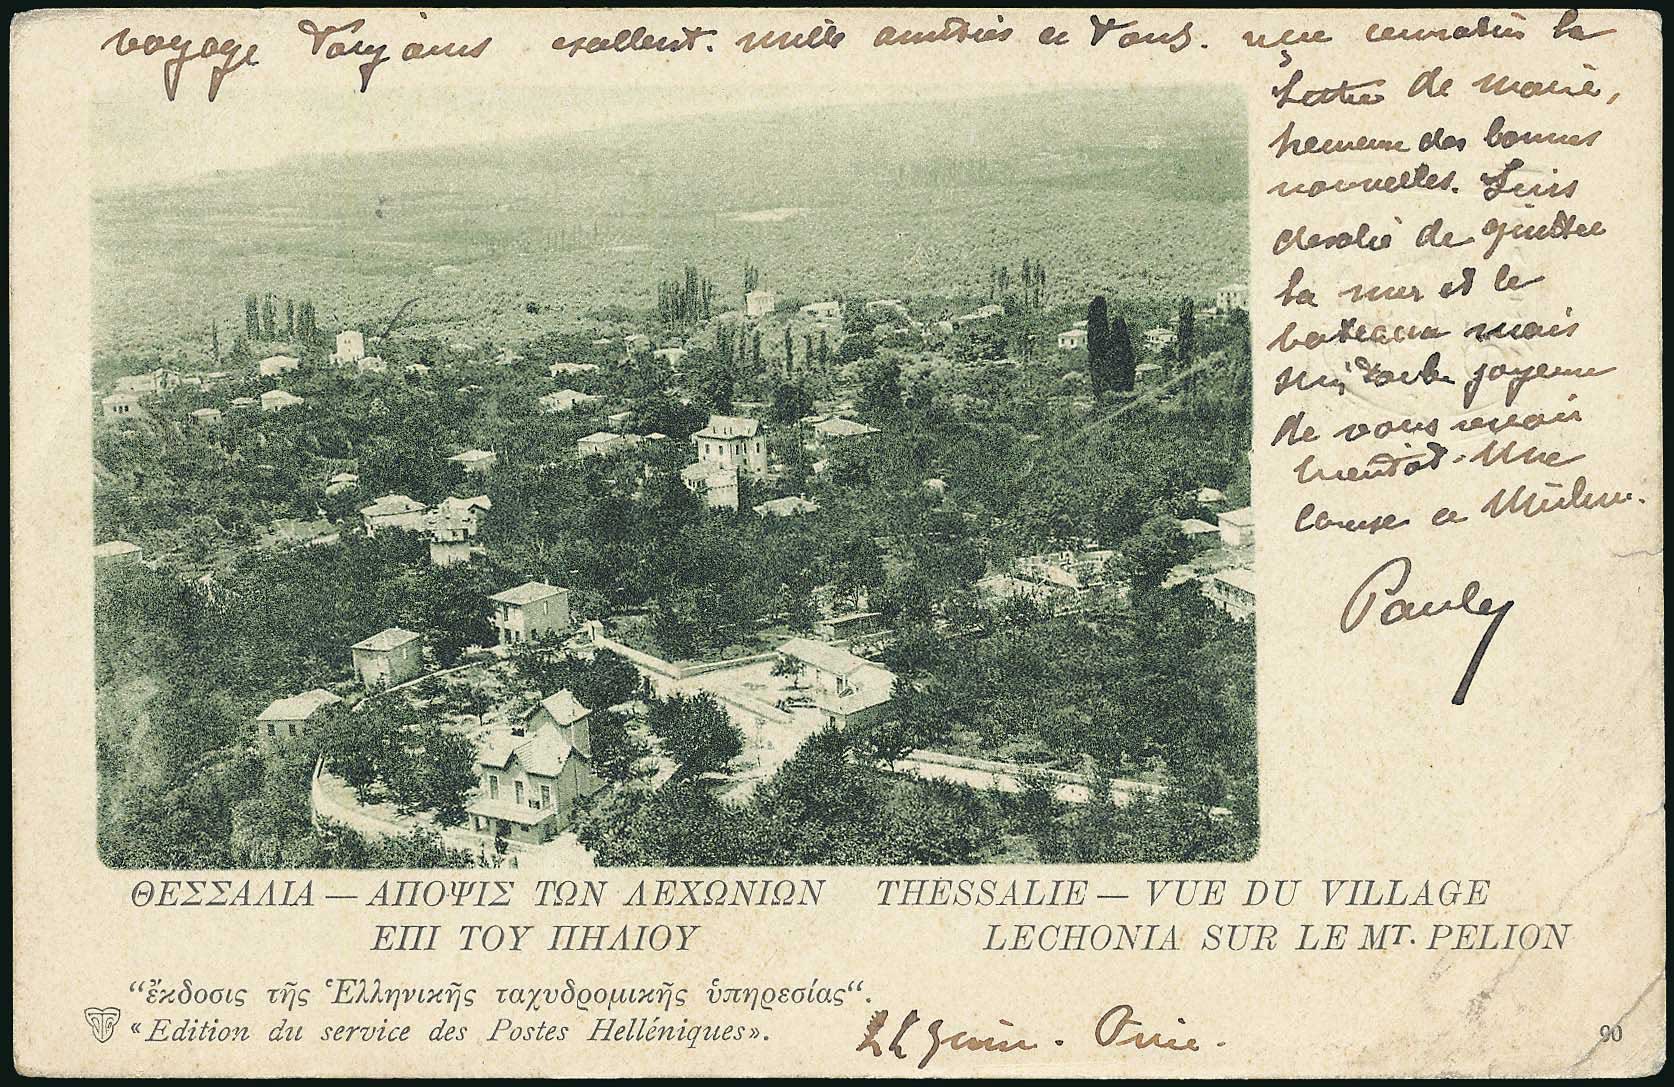 voyage Toujours excellent. mille amitiés à Tous. une
lettre de
des bonnes
nouvelles. Suis
désolé de quitter
la mer et le
bateau mais
joyeux
de vous revoir
bientôt. Une
à
Pauly
ΘΕΣΣΑΛΙΑ — ΑΠΟΨΙΣ ΤΩΝ ΛΕΧΩΝΙΩΝ
ΕΠΙ ΤΟΥ ΠΗΛΙΟΥ
THESSALIE — VUE DU VILLAGE
LECHONIA SUR LE MT. PELION
“ἔκδοσις τῆς Ἑλληνικῆς ταχυδρομικῆς ὑπηρεσίας“.
« Edition du service des Postes Helléniques».
22 Juin.
90